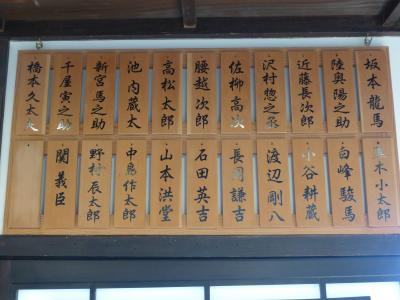 坂本龍馬
陸奥陽之助
近藤長次郎
沢村惣之丞
佐柳高次
腰越次郎
高松太郎
池内蔵太
新宮馬之助
千屋寅之助
橋本久太夫
小太郎
白峰駿馬
小谷耕蔵
渡辺剛八
長岡謙吉
石田英吉
山本洪堂
中島作太郎
野村辰太郎
関義臣